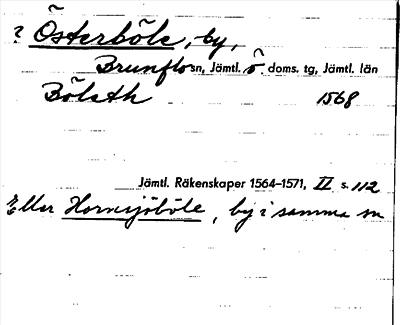 ? Österböle, by,
Brunflo sn, Jämtl. Ö. doms. tg, Jämtl. län
Böleth 1568
Jämtl. Räkenskaper 1564–1571, II s. 112
Eller Hornsjöböle, by i samma sn